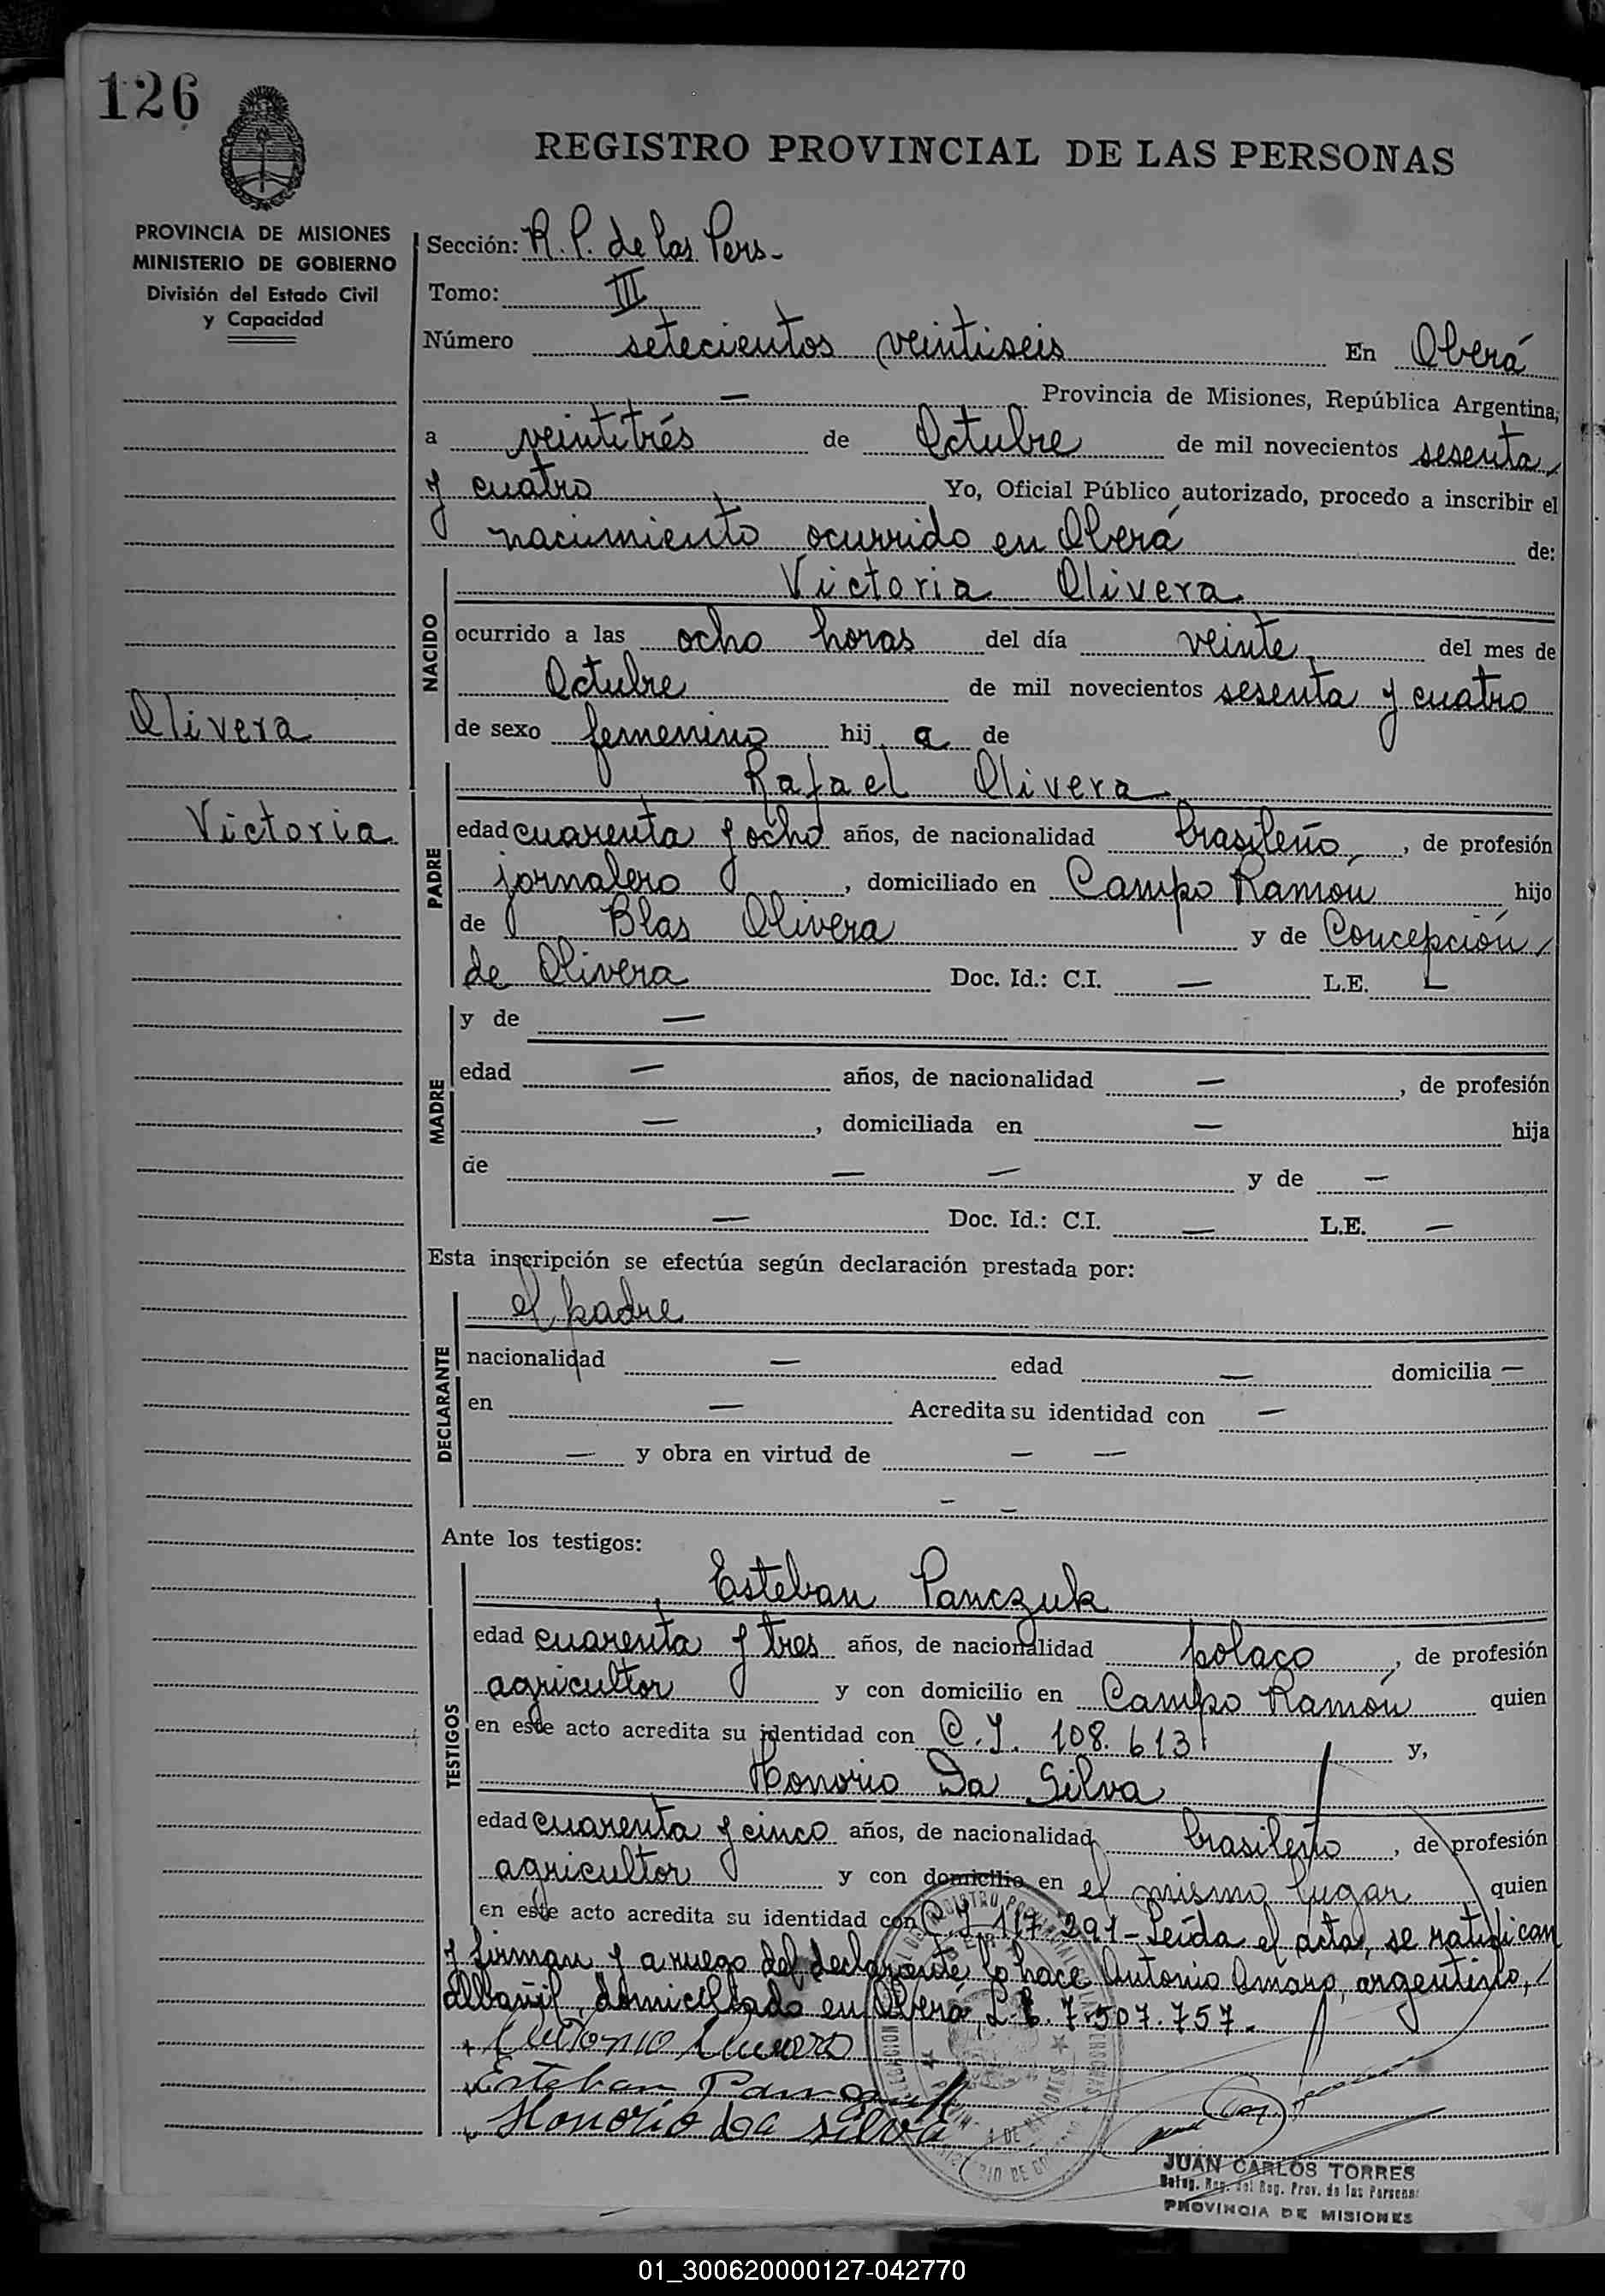 126
REGISTRO PROVINCIAL DE LAS PERSONAS
PROVINCIA DE MISIONES
MINISTERIO DE GOBIERNO
División del Estado Civil
y Capacidad
Sección: R. P. de las Pers.
Tomo: III
Número setecientos veintiseis En Oberá
— Provincia de Misiones, República Argentina,
a veintitrés de Octubre de mil novecientos sesenta
y cuatro Yo, Oficial Público autorizado, procedo a inscribir el
nacimiento ocurrido en Oberá de:
NACIDO
Victoria Olivera
ocurrido a las ocho horas del día veinte del mes de
Octubre de mil novecientos sesenta y cuatro
de sexo femenino hij a de
Olivera
Victoria
PADRE
Rafael Olivera
edad cuarenta y ocho años, de nacionalidad brasileño, de profesión
jornalero, domiciliado en Campo Ramón hijo
de Blas Olivera y de Concepción
de Olivera Doc. Id.: C.I. — L.E. —
MADRE
y de —
edad — años, de nacionalidad —, de profesión
—, domiciliada en — hija
de — — y de —
— Doc. Id.: C.I. — L.E. —
Esta inscripción se efectúa según declaración prestada por:
DECLARANTE
el padre
nacionalidad — edad — domicilia —
en — Acredita su identidad con —
— y obra en virtud de — —
— —
Ante los testigos:
TESTIGOS
Esteban Panczuk
edad cuarenta y tres años, de nacionalidad polaco, de profesión
agricultor y con domicilio en Campo Ramón quien
en este acto acredita su identidad con C.I. 108.613 y,
Honorio Da Silva
edad cuarenta y cinco años, de nacionalidad brasileño, de profesión
agricultor y con domicilio en el mismo lugar quien
en este acto acredita su identidad con C.I. 117.291 - Leída el acta, se ratifican
y firman y a ruego del declarante lo hace Antonio Amaro, argentino,
albañil, domiciliado en Oberá, L.E. 7.507.757.
Antonio Amaro
Esteban Panczuk
Honorio da Silva
JUAN CARLOS TORRES
Deleg. Reg. del Reg. Prov. de las Personas
PROVINCIA DE MISIONES
01_300620000127-042770